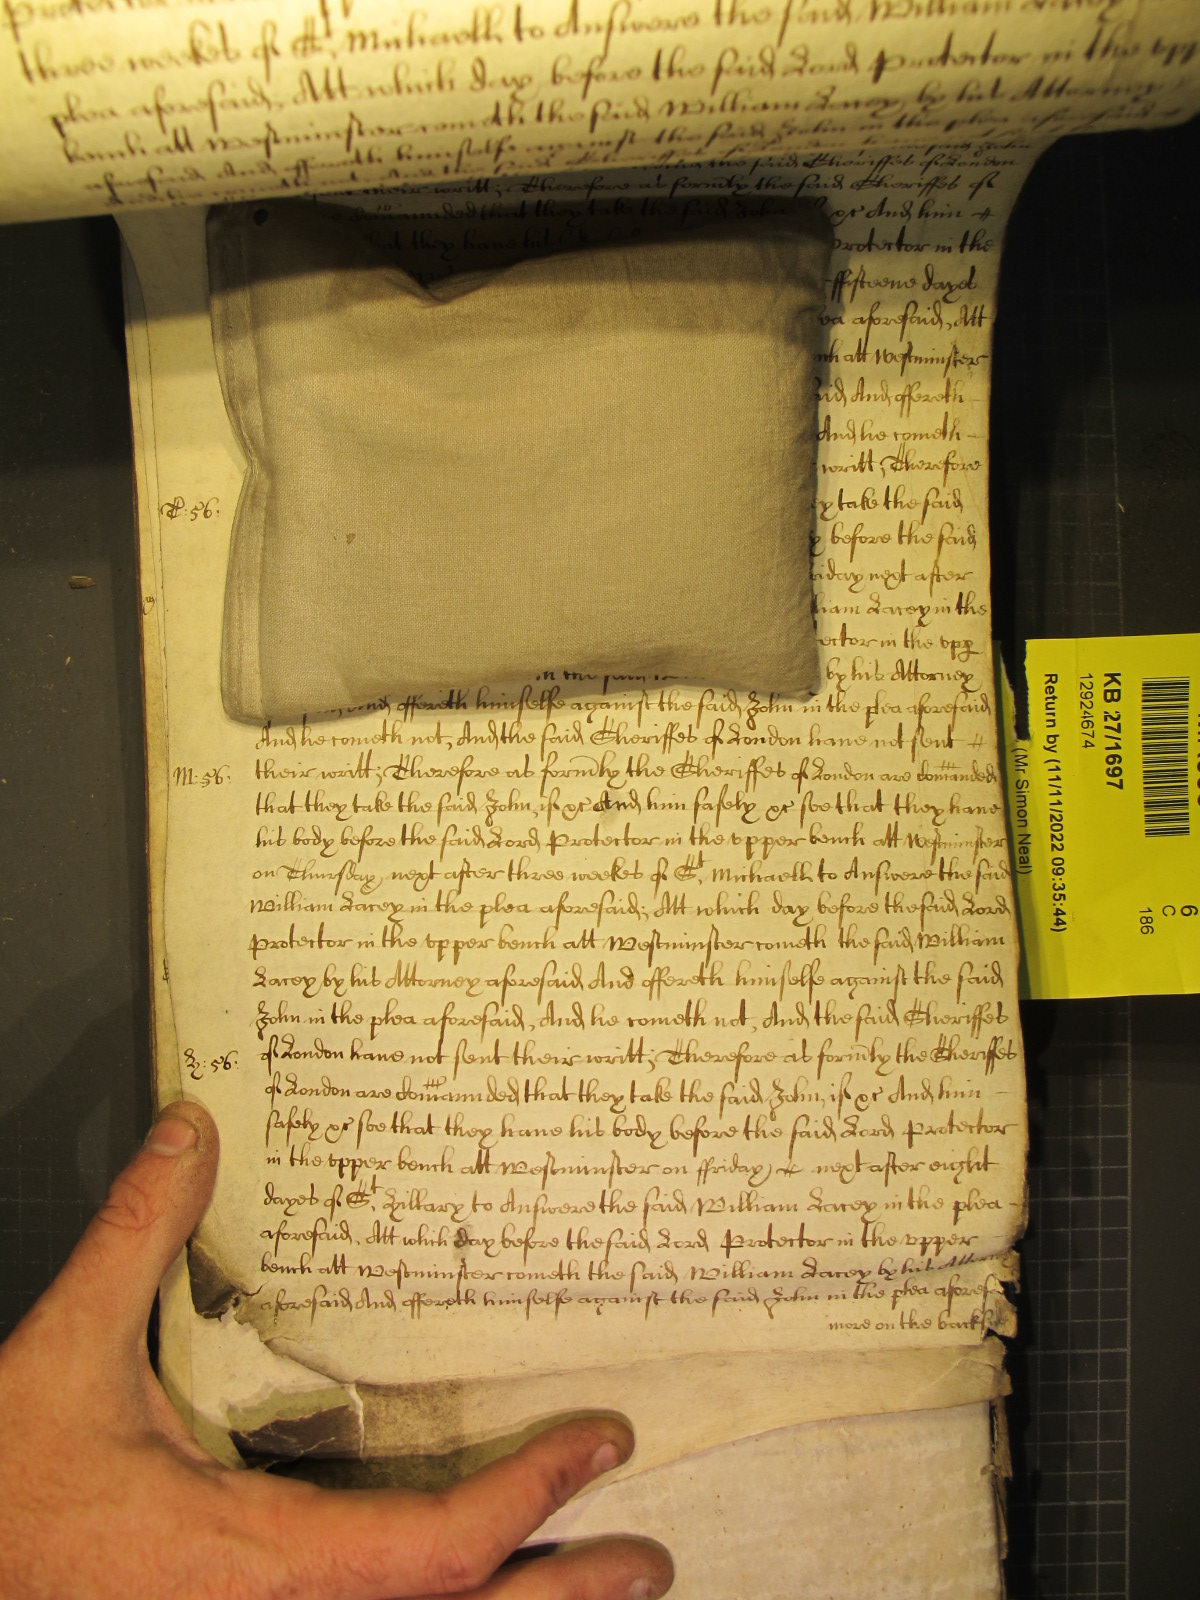 three weekes of St. Michaell to Answere the said William Lacey
plea aforesaid, Att which day before the said Lord Protector in the upp
bench att Westminster cometh the said William Lacey by his Attorney
aforesaid And offereth himselfe against the said John in the plea aforesaid
the said Sheriffes of London
their writt; Therefore as form̄ly the said Sheriffes of
com̄anded that they take the said John xc And him
that they have his Protector in the
ffifteene dayes
aforesaid, Att
att Westminster
And offereth
And he cometh
writt; Therefore
T: 56: take the said
before the said
next after
Lacey in the
in the upp
in the said by his Attorney
and offereth himselfe against the said John in the plea aforesaid
And he cometh not, And the said Sheriffes of London have not sent
M: 56: their writt; Therefore as form̄ly the Sheriffes of London are com̄anded
that they take the said John, if xc And him safely xc soe that they have
his body before the said Lord Protector in the upper bench att Westminster
on Thursday next after three weekes of St. Michaell to Answere the said
William Lacey in the plea aforesaid; Att which day before the said Lord
Protector in the upper bench att Westminster cometh the said William
Lacey by his Attorney aforesaid And offereth himselfe against the said
John in the plea aforesaid, And he cometh not, And the said Sheriffes
H: 56: of London have not sent their writt; Therefore as form̄ly the Sheriffes
of London are com̄annded that they take the said John, if xc And him
safely xc soe that they have his body before the said Lord Protector
in the upper bench att Westminster on ffriday next after eight
dayes of St. Hillary to Answere the said William Lacey in the plea
aforesaid, Att which day before the said Lord Protector in the upper
bench att Westminster cometh the said William Lacey by his Attorney
aforesaid And offereth himselfe against the said John in the plea aforesa
more on the backside
KB 27/1697
12924674
Return by (11/11/2022 09:35:44)
(Mr Simon Neal)
6
C
186